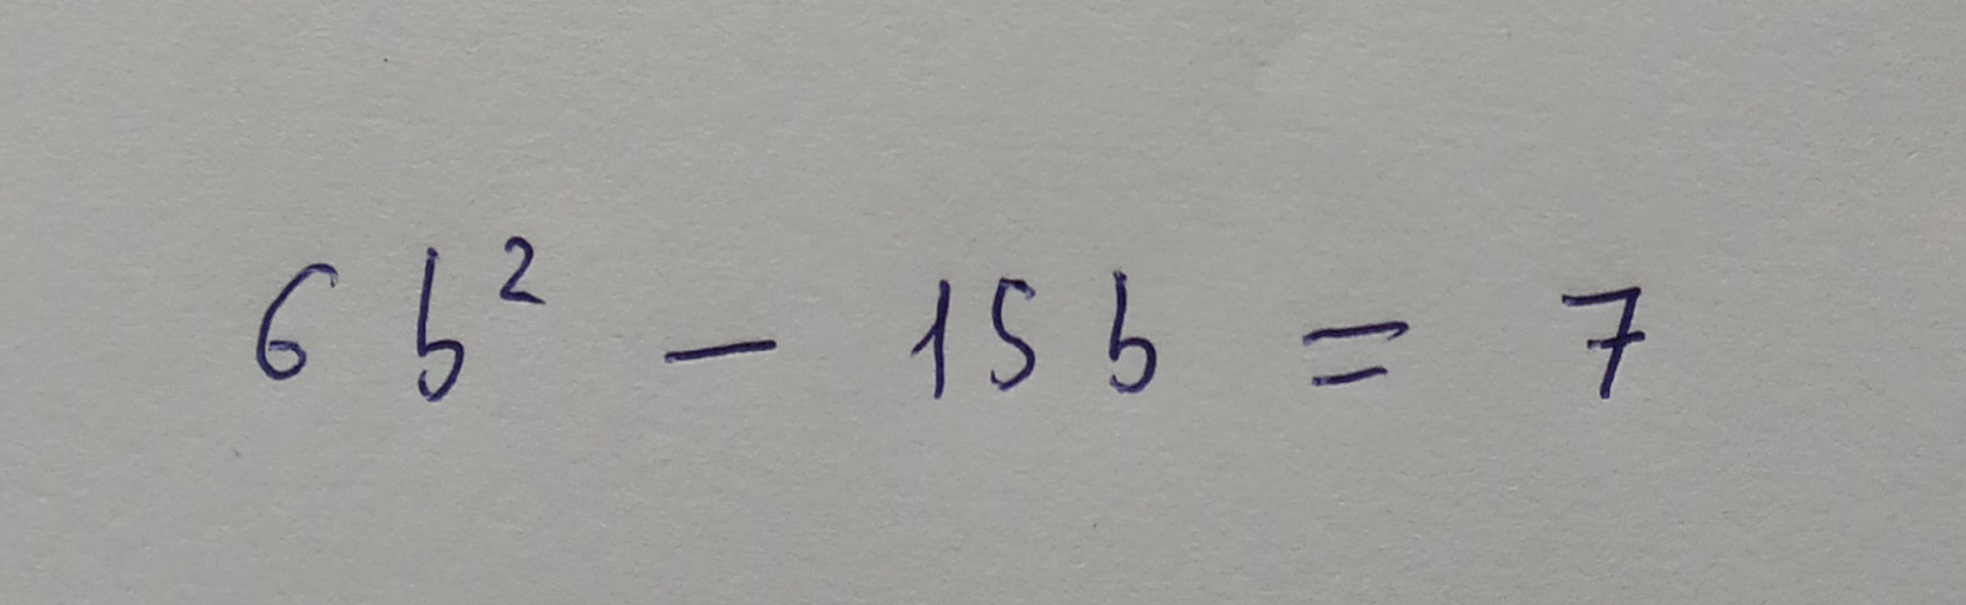 6 b² - 15 b = 7